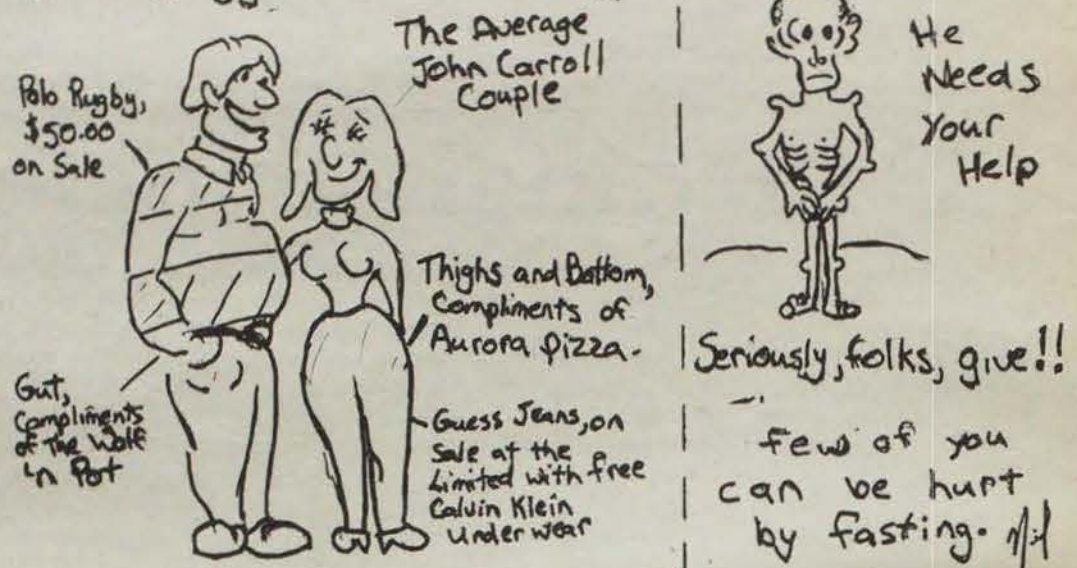 The Average
John Carroll
Couple
Polo Rugby,
$50.00
on Sale
Thighs and Bottom,
Compliments of
Aurora Pizza.
Gut,
Compliments
of The Wolf
'n Pot
Guess Jeans, on
Sale at the
Limited with free
Calvin Klein
underwear
He
Needs
Your
Help
Seriously, folks, give!!
few of you
can be hurt
by fasting.